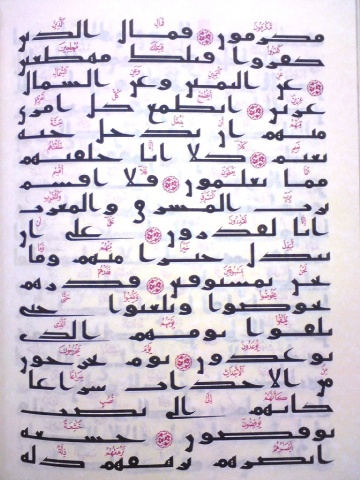 مكرمون ۝ فمال الذين
كفروا قبلك مهطعين
۝ عن اليمين وعن الشمال
عزين ۝ ايطمع كل امرئ
منهم ان يدخل جنة
نعيم ۝ كلا انا خلقنهم
مما يعلمون ۝ فلا اقسم
برب المشرق والمغرب
انا لقدرون ۝ على ان
نبدل خيرا منهم وما
نحن بمسبوقين ۝ فذرهم
يخوضوا ويلعبوا حتى
يلقوا يومهم الذي
يوعدون ۝ يوم يخرجون
من الاجداث سراعا
كانهم الى نصب
يوفضون ۝ خشعة
ابصرهم ترهقهم ذلة